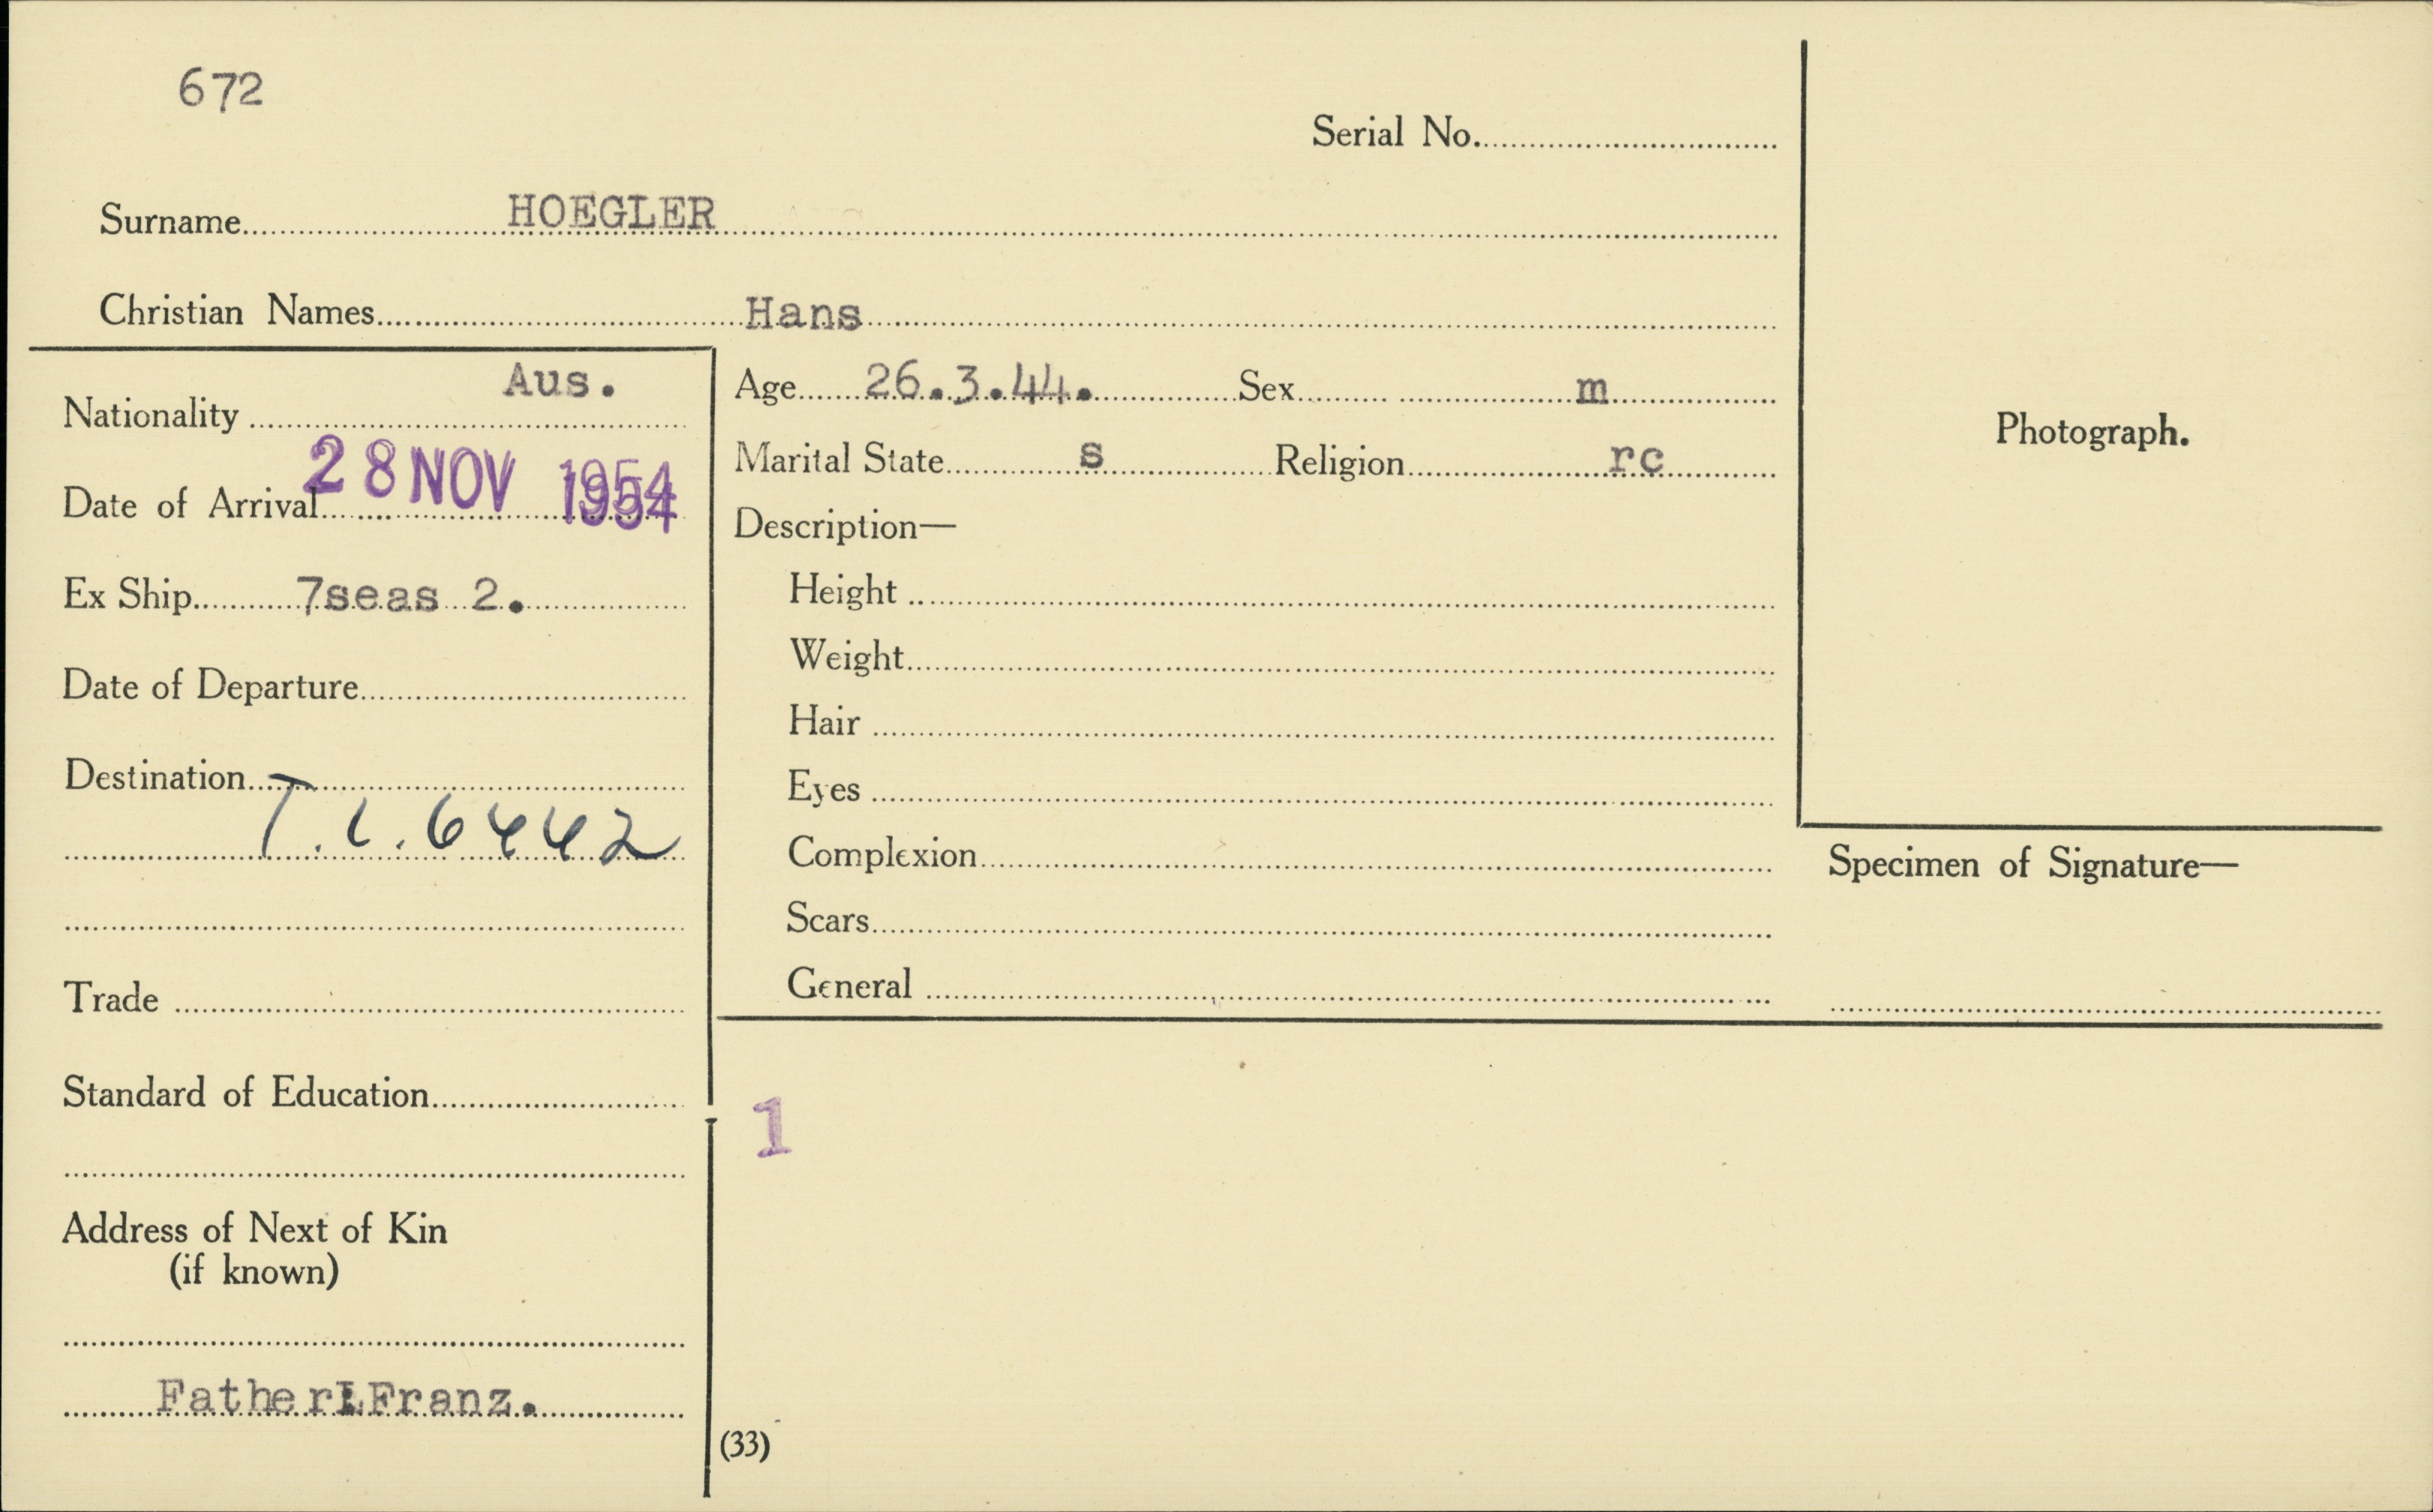 672
Serial No.
Surname HOEGLER
Christian Names Hans
Nationality Aus.
Date of Arrival 28 NOV 1954
Ex Ship 7seas 2.
Date of Departure
Destination
T.L.6442
Trade
Standard of Education
Address of Next of Kin
(if known)
Father:Franz.
Age 26.3.44. Sex m
Marital State s Religion rc
Description—
Height
Weight
Hair
Eyes
Complexion
Scars
General
1
(33)
Photograph.
Specimen of Signature—